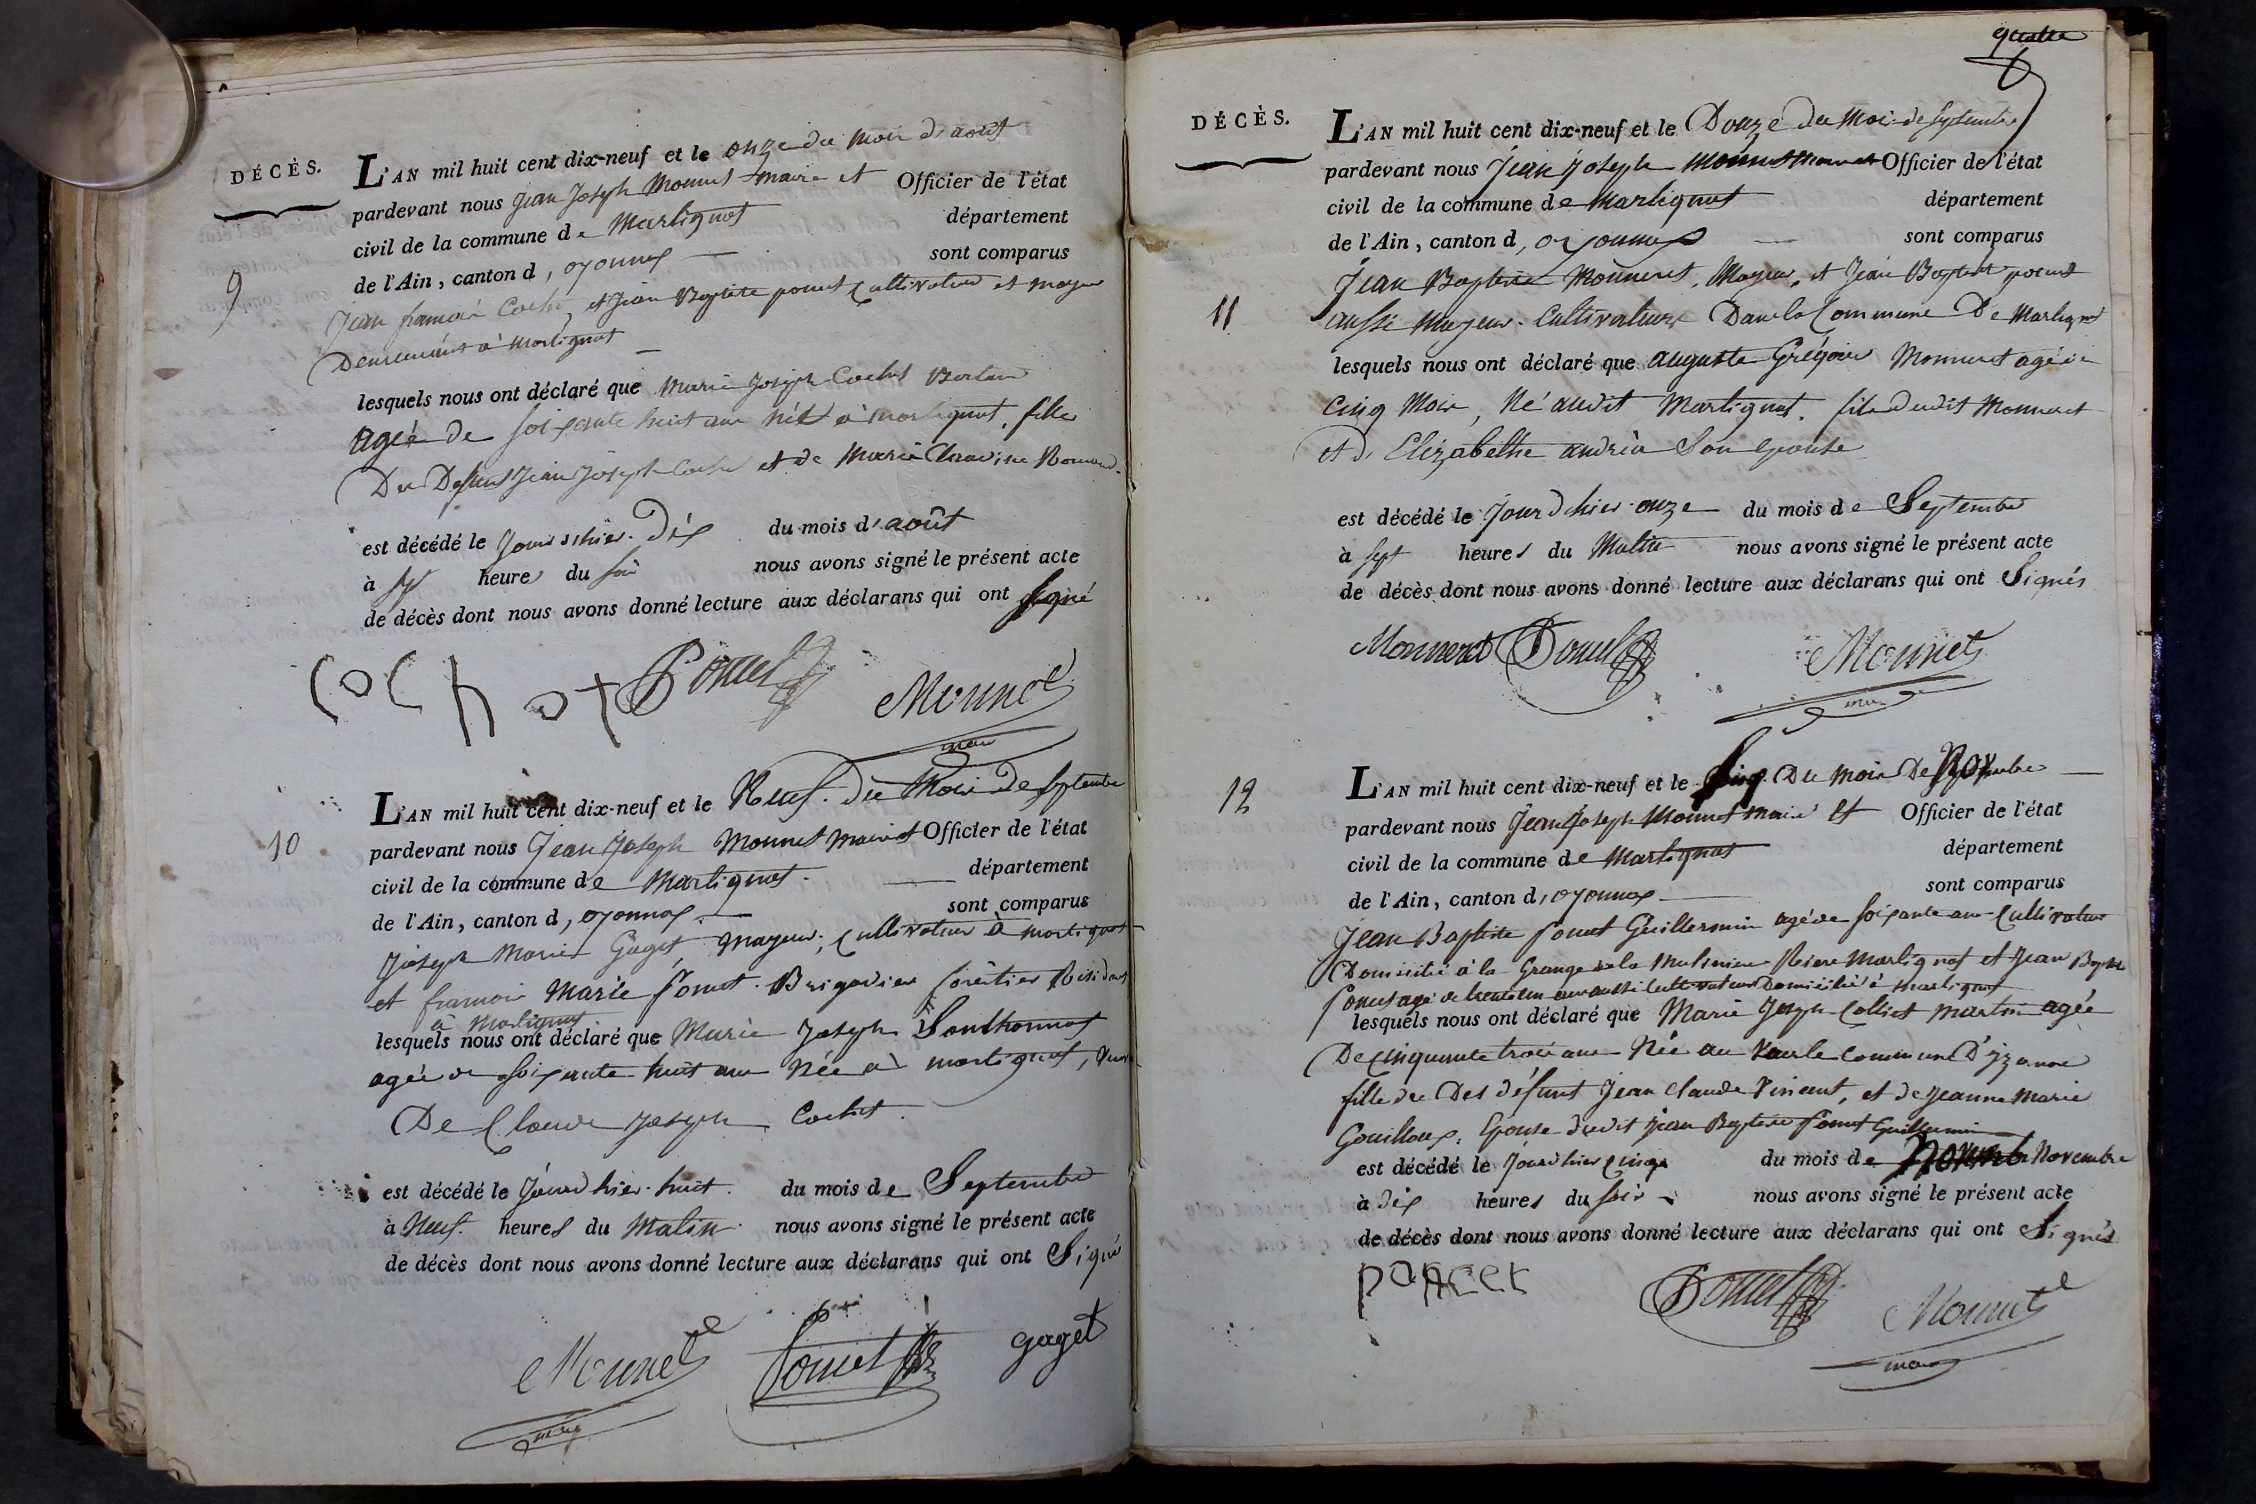 DÉCÈS.
L'AN mil huit cent dix-neuf et le onze du mois d'août
pardevant nous Jean Joseph Monnet maire et Officier de l'état
civil de la commune de Martignat département
de l'Ain, canton d, oyonnax sont comparus
9
Jean françois Cochet et Jean Baptiste poncet Cultivateur et
Demeurant à Martignat
lesquels nous ont déclaré que Marie Joseph Cochet
agée de soixante huit ans née à Martignat, fille
Du Defunt Jean Joseph Cochet et de Marie
est décédé le Jour d'hier Dix du mois d'août
à heures du soir nous avons signé le présent acte
de décès dont nous avons donné lecture aux déclarans qui ont signé
cochet Poncet Monnet
maire
10
L'AN mil huit cent dix-neuf et le Neuf du Mois De septembre
pardevant nous Jean Joseph Monnet Maire et Officier de l'état
civil de la commune de Martignat département
de l'Ain, canton d, oyonnax sont comparus
Joseph Marie Gaget, Cultivateur à Martignat
et françois Marie Poncet Brigadier forêtier Résidant
à Martignat
lesquels nous ont déclaré que Marie Joseph Sonthonnat
agée de soixante huit ans Née à Martignat,
De Claude Joseph Cochet
est décédé le Jour d'hier huit du mois de Septembre
à Neuf heures du Matin nous avons signé le présent acte
de décès dont nous avons donné lecture aux déclarans qui ont Signé
Monnet Poncet gaget
maire
quatre
DÉCÈS.
L'AN mil huit cent dix-neuf et le Douze du Mois de Septembre
pardevant nous Jean Joseph Monnet Officier de l'état
civil de la commune de Martignat département
de l'Ain, canton d, oyonnax sont comparus
11
Jean Baptiste Monneret, et Jean Baptiste poncet
aussi Cultivateurs Dans la Commune De Martignat
lesquels nous ont déclaré que auguste Grégoire Monneret agé de
Cinq Mois, Né audit Martignat, fils dudit Monneret
et d'Elizabethe andréa Son épouse
est décédé le Jour d'hier onze du mois de Septembre
à sept heures du Matin nous avons signé le présent acte
de décès dont nous avons donné lecture aux déclarans qui ont Signés
Monneret Poncet Monnet
maire
12
L'AN mil huit cent dix-neuf et le Du mois De
pardevant nous Jean Joseph Monnet Maire et Officier de l'état
civil de la commune de Martignat département
de l'Ain, canton d, oyonnax sont comparus
Jean Baptiste Poncet Guillermin agé de soixante ans Cultivateur
Domicilié à la Grange de la Martignat et Jean Bapte
Poncet agé de ans aussi Cultivateur Domicilié à Martignat
lesquels nous ont déclaré que Marie Joseph Colliet Martin agée
De cinquante trois ans Née au commune D'izernore
fille de Des défunt Jean Claude Vincent, et de Jeanne Marie
Gouilloux, Epouse dudit Jean Baptiste Poncet Guillermin
est décédé le Jour d'hier Cinq du mois de Novemb Novembre
à dix heures du soir nous avons signé le présent acte
de décès dont nous avons donné lecture aux déclarans qui ont Signés
poncet Poncet Monnet
maire